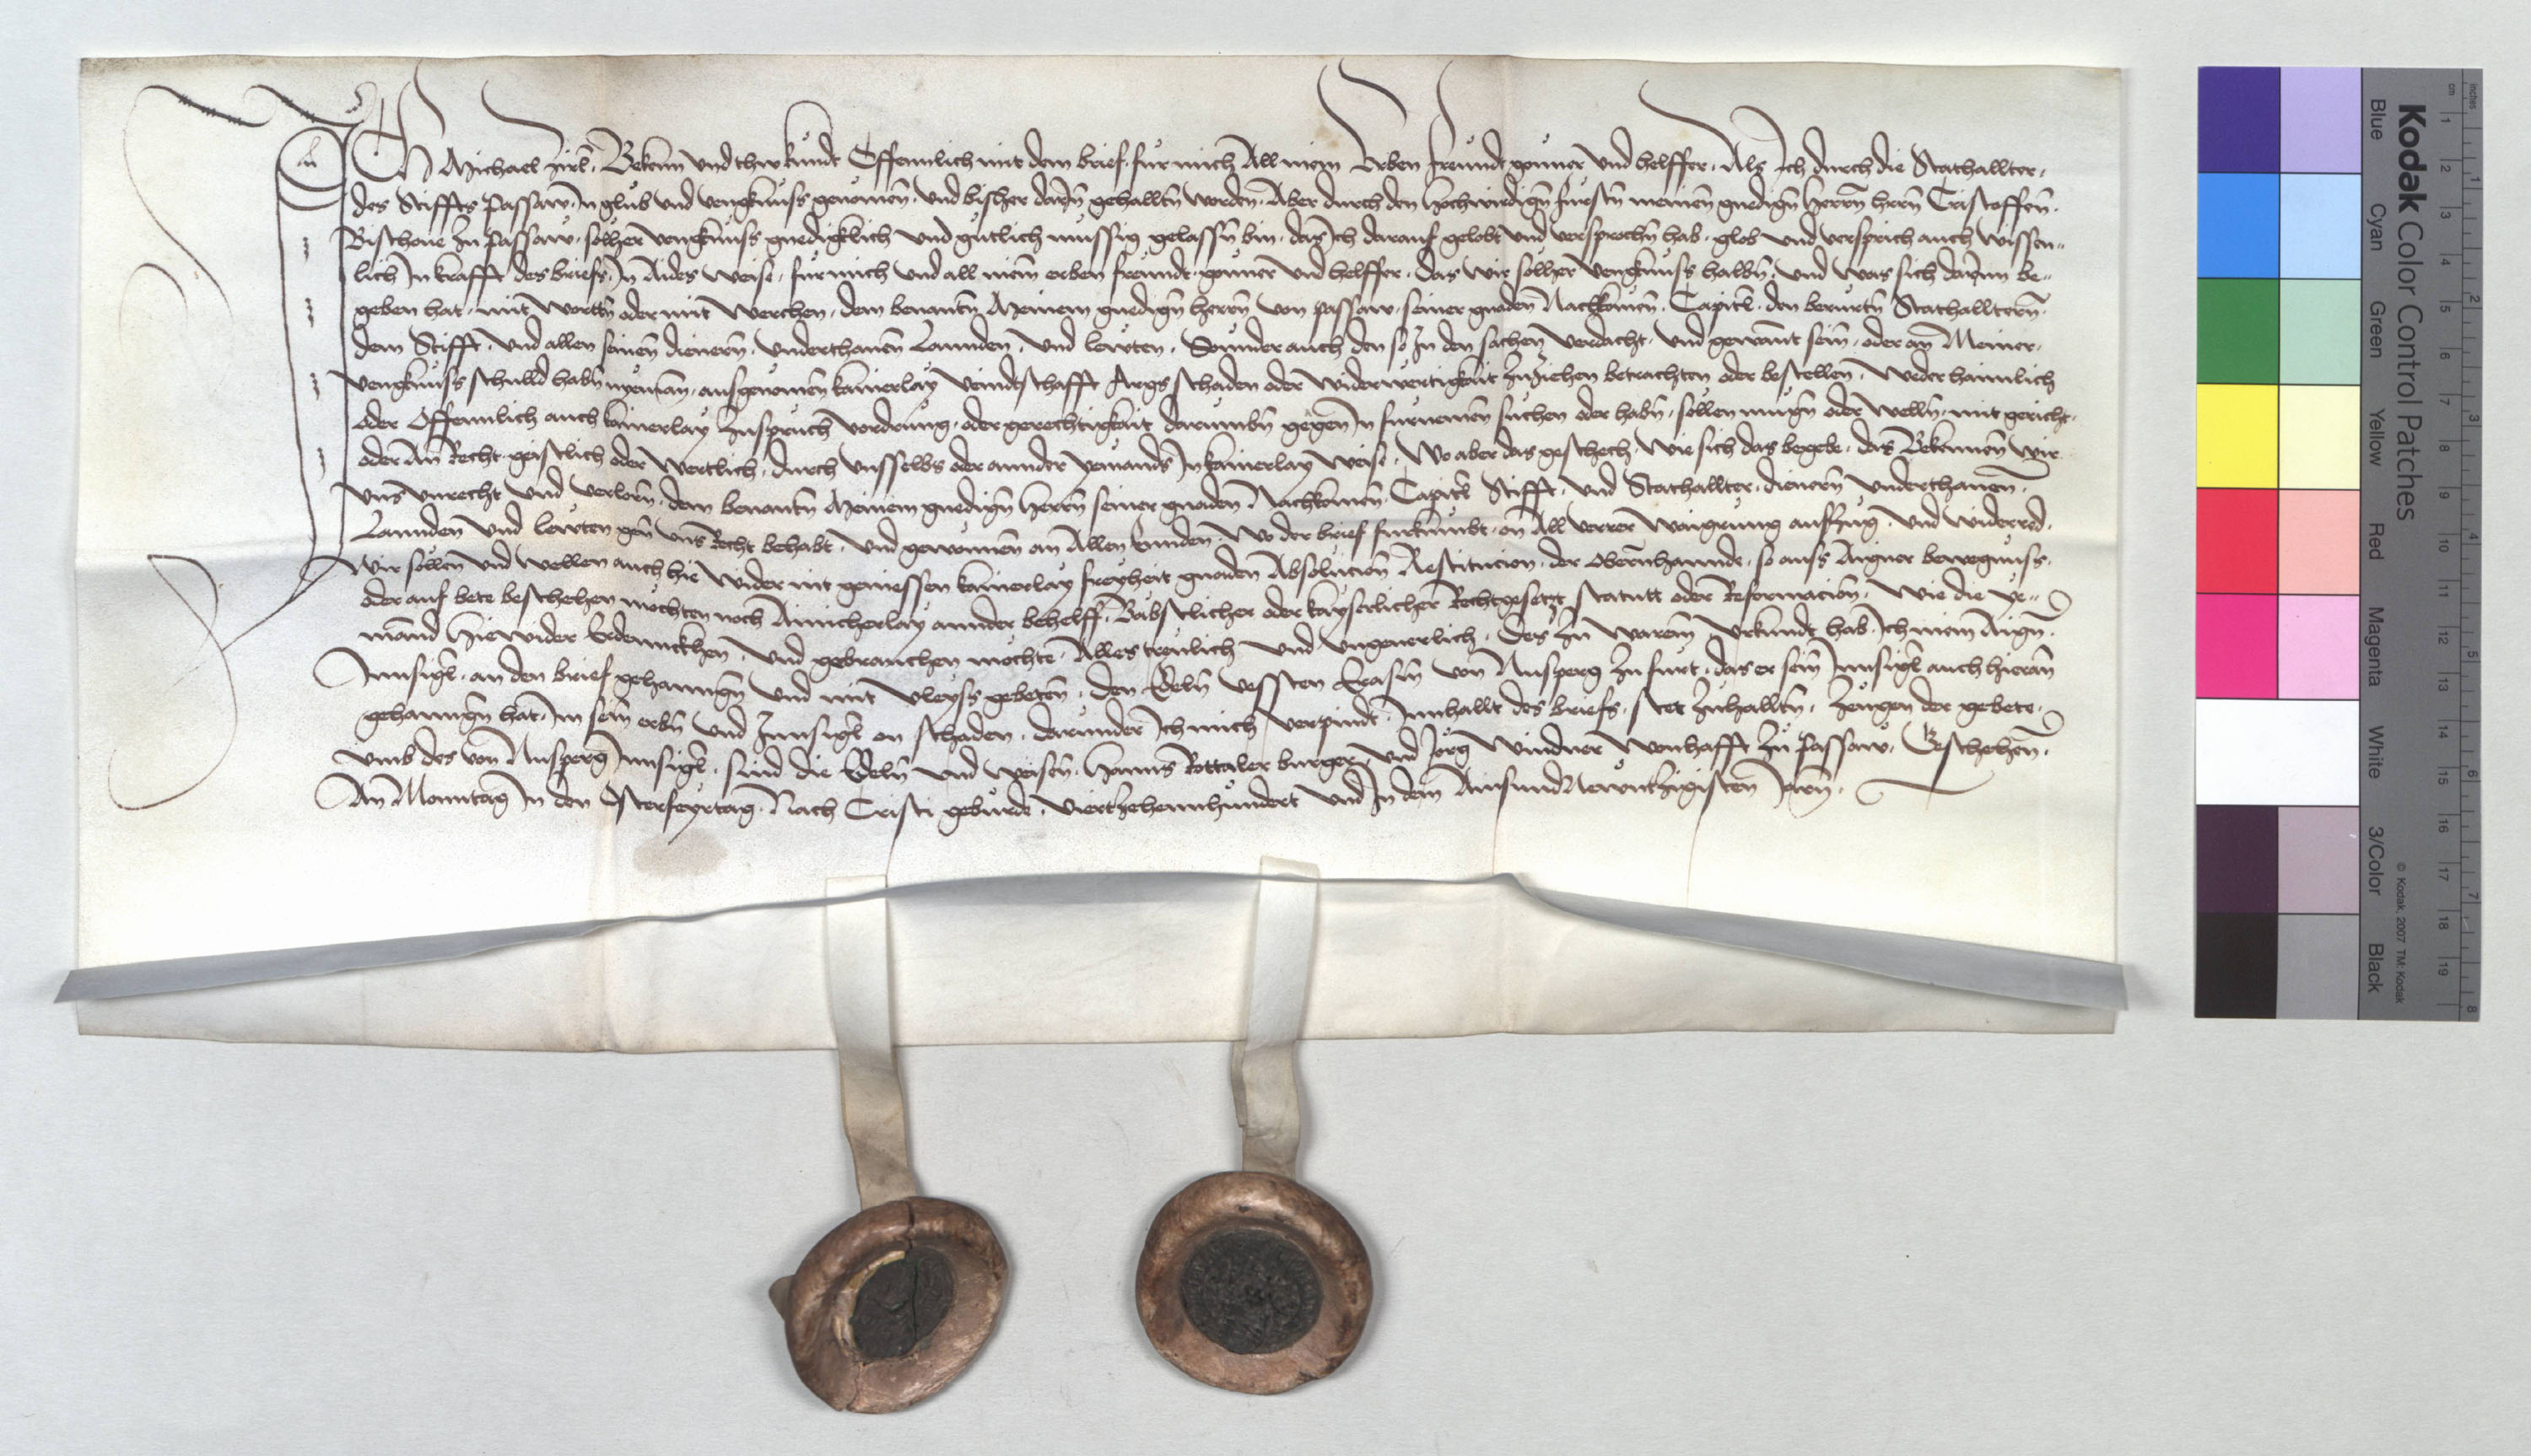 Ich Michael Zirl. Bekenn und thw kundt Offennlich mit dem brief. fur mich All mein Erben freundt gonner und helffer. Als Ich durch die Stathallter.
des Stiffts Passaw. In glub und vengknuss genomen. und bisher darin gehalltn worden. Aber durch den Hochwirdign fursten meinen gnedign Herrn hern Cristoffen.
Bischove Zu Passaw. solher vengknuss gnedigklich und gutlich mussig gelassn bin. das Ich darauf gelobt und versprochn hab. glob und versprich auch wissen-
lich In krafft des briefs. In Aides weise. fur mich und all mein erben freundt. gonner und helffer. das wir solher vengknuss halbn. und was sich darinn be-
geben hat. mit wortn oder mit werchen. dem benantn Meinem gnedign herrn von passaw. seiner gnaden Nachkomen. Capitl. den berurtn Stathalltern.
dem Stifft. und allen seinen dienern. underthanen Lannden. und lewten. Sounder auch den so In den sachen verdacht. und gewannt sein. oder an Meiner.
vengknuss schulld habn nyeman. ausgenomen kainerlay veindtschafft Args schaden oder widerwertigkait zuziehen betrachten oder bestellen. weder haimlich
oder Offennlich auch kainerlay Zuspruch vordrung. oder gerechtigkait darumbn gegen In furnemen suchen oder habn. sollen mugn oder welln. mit gericht.
oder An Recht. geistlich oder werltlich. durch unsselbs oder annder yemands In kainerlay weise. Wo aber das geschech. wie sich das begebe. das Bekennen wir
uns unrecht und verlorn. dem benantn Meinem gnedign Herrn seiner gnaden Nachkomen. Capitl Stifft. und Stathallter. dienern underthanen.
Lannden und lewten gen uns Recht behabt. und gewonnen an Allen Ennden. Wo der brief furkumbt. on All verrer waigrung aufzug. und widerred.
Wir sollen und wellen auch hie wider nit geniessen kainerlay freyheit gnaden Absolucion Restitucion. der Obernhannde. so auss Aigner bewegnuss.
oder auf bete beschehen mochten noch Ainicherlay annder behelff. Babstlicher oder kayserlicher Rechtgesetzt statutt oder Reformacion. wie die ye-
mand hiewider Erdennckhen. und gebrauchen mochte. Alles treulich und ungeverlich. Des Zu warem Urkundt hab Ich mein Aign.
Innsigl. an den brief gehanngn und mit vleyss gebeten. den Edeln vessten Erasm von Nusperg zu furt. das er sein Innsigl auch hieran
gehanngn hat. Im sein erbn und Innsigl on schaden. darunder Ich mich verpindt. Innhallt des briefs. stet zuhalltn. Zeugen der gebete.
umb des von Nusperg Innsigl. sind die Edeln und weisen. Hanns Rottaler burger. und Jorg Windner wonhafft zu Passaw. Geschehen.
An Monntag In den Osterfeyrtag. Nach Cristi geburde. Viertzehennhundert und In dem AinsundNewntzigisten Jarn.
Kodak Color Control Patches
Blue Cyan Green Yellow Red Magenta White 3/Color Black
© Kodak, 2007 TM: Kodak
inches 1 2 3 4 5 6 7 8
cm 1 2 3 4 5 6 7 8 9 10 11 12 13 14 15 16 17 18 19